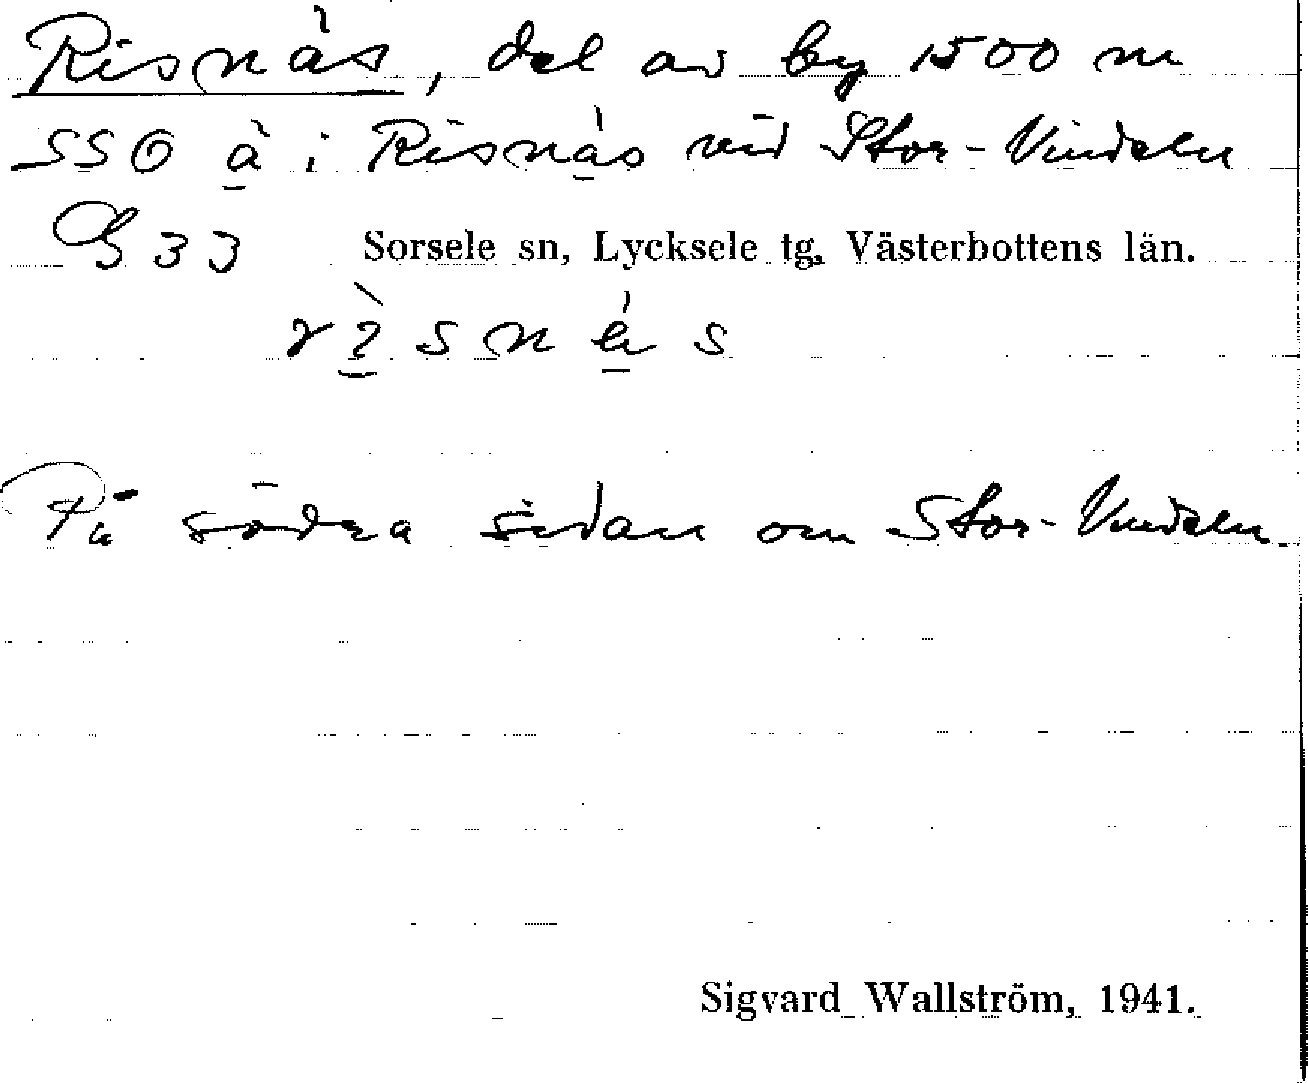 Risnäs, del av by 1500 m
SSO ä i Risnäs vid Stor-Vindeln
33 Sorsele sn, Lycksele tg, Västerbottens län.
På södra sidan om Stor-Vindeln.
Sigvard Wallström, 1941.